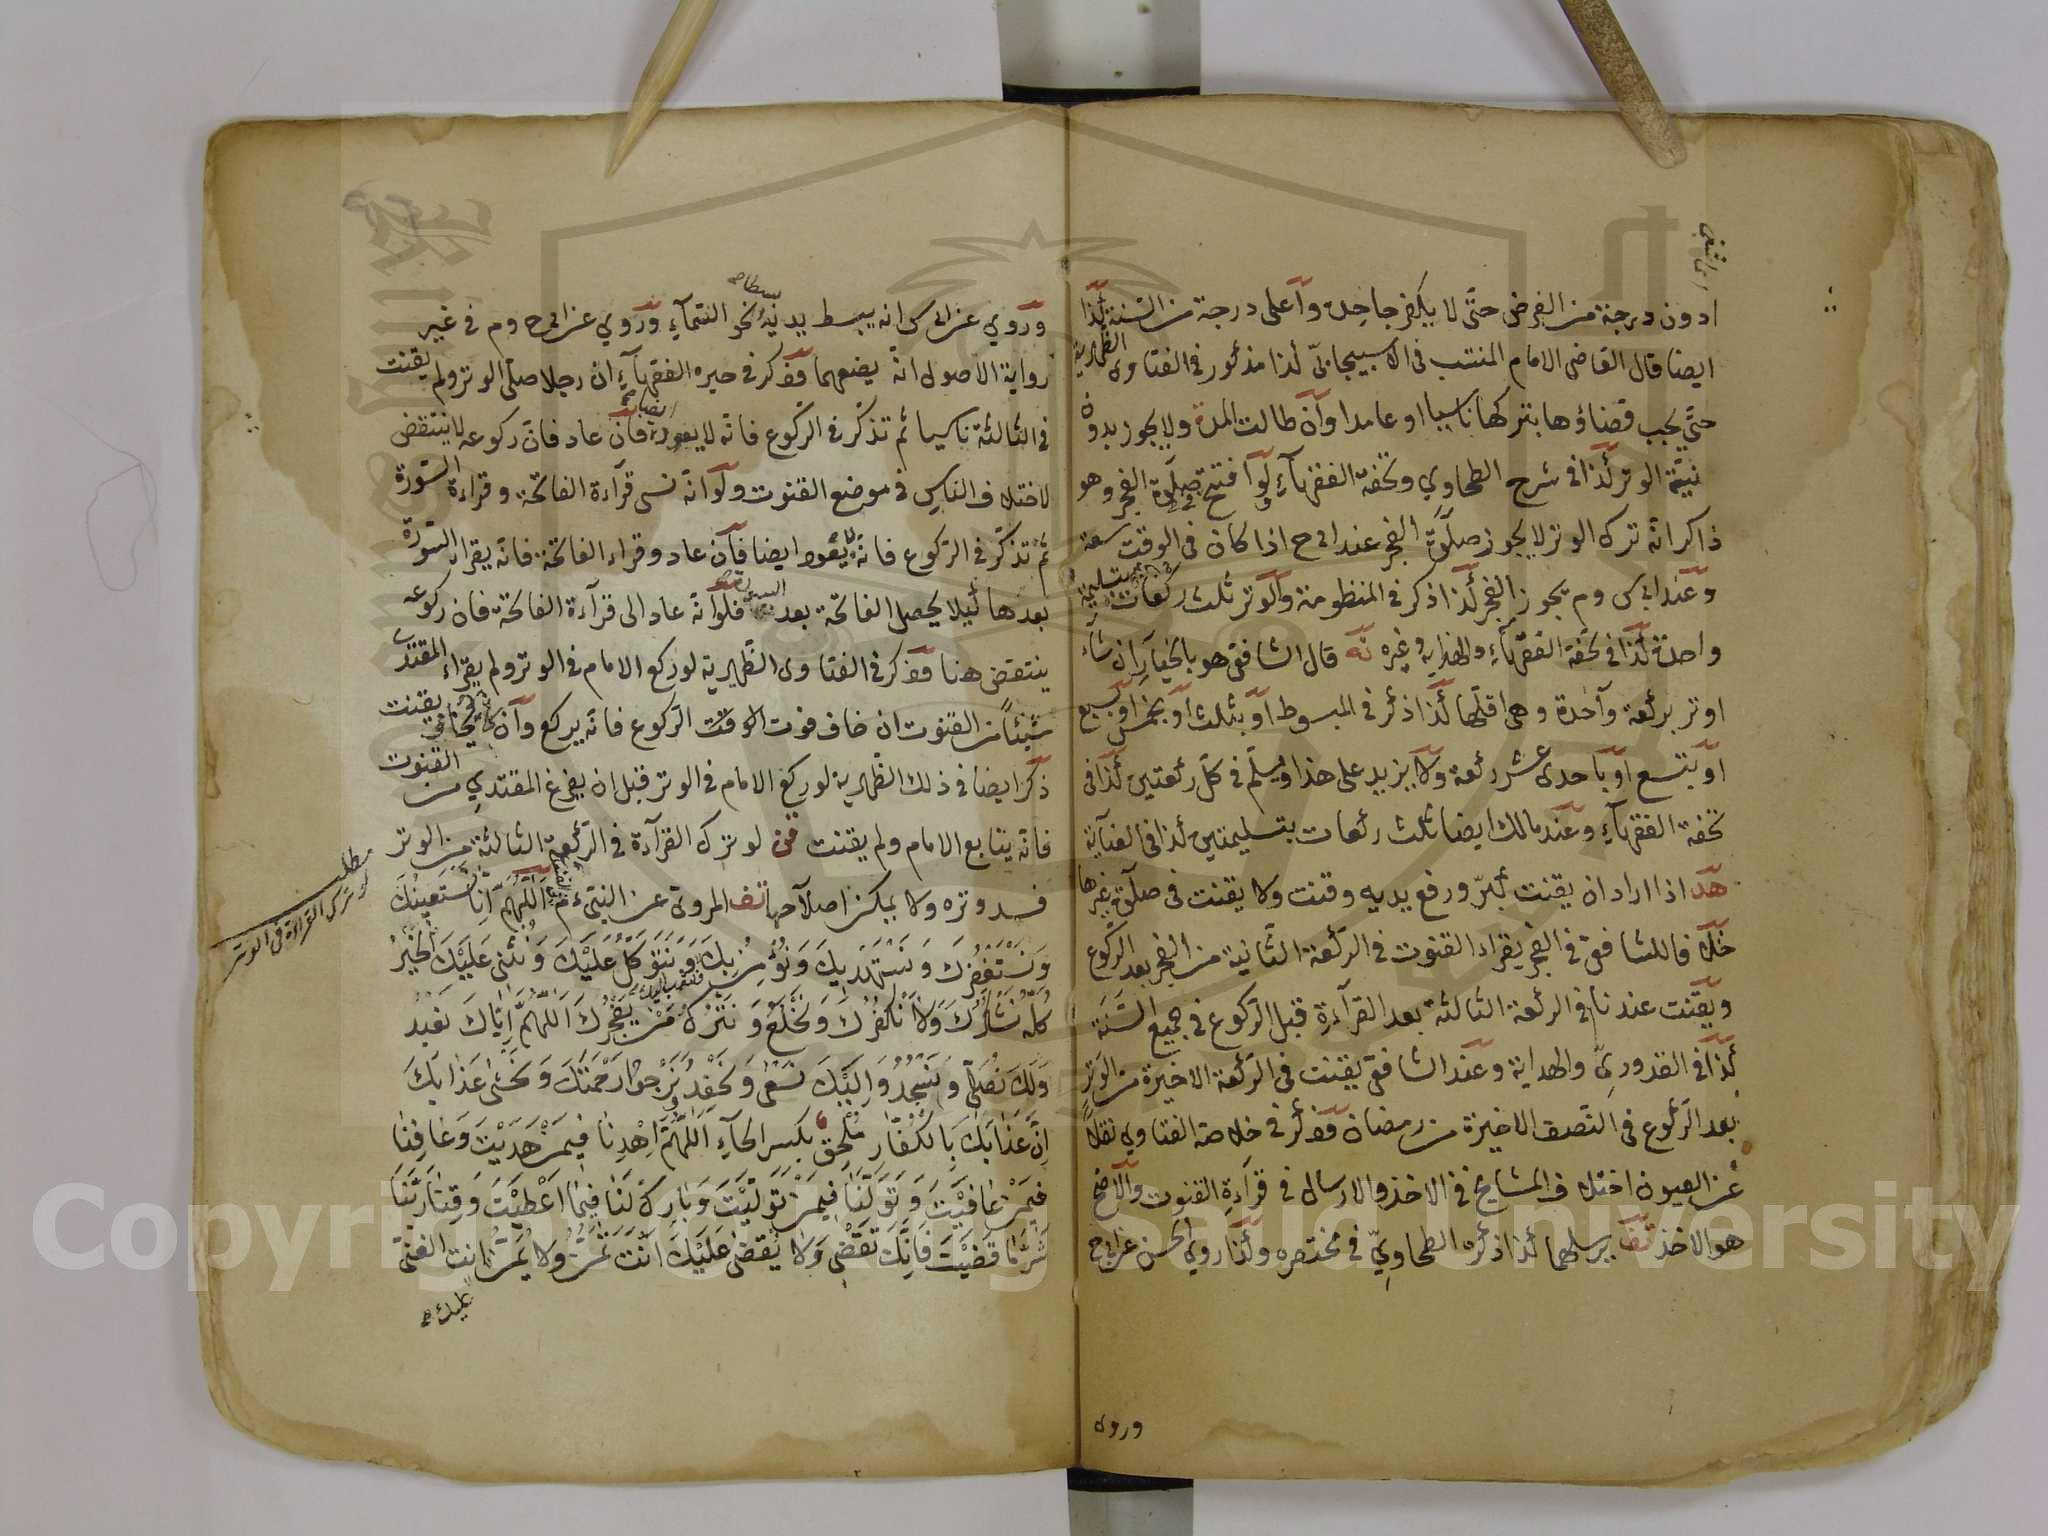 ادون درجة من الفرض حتى لا يكفر جاحده وأعلى درجة من السنة كذا
ايضا قال القاضى الامام المنتسب فى الاسبيجابى كذا مذكور فى الفتاوى الظهيرية
حتى يجب قضاؤها بتركها ناسيا او عامدا وان طالت المدة ولا يجوز بدون
نية الوتر كذا فى شرح الطحاوي وتحفة الفقهاء ولو افتتح صلوة الفجر وهو
ذاكر انه ترك الوتر لا يجوز صلوة الفجر عند ابى ح اذا كان فى الوقت سعة
وعند ابى س وم يجوز الفجر كذا ذكر فى المنظومة والوتر ثلث ركعات بتسليمة
واحدة كذا فى تحفة الفقهاء والهداية وغيره قال الشافعى هو بالخيار ان شاء
اوتر بركعة واحدة وهى اقلها كذا ذكر فى المبسوط او بثلث او بخمس او بسبع
او بتسع او باحدى عشر ركعة ولا يزيد على هذا ويسلم فى كل ركعتين كذا فى
تحفة الفقهاء وعند مالك ايضا ثلث ركعات بتسليمتين كذا فى العناية
هد اذا اراد ان يقنت كبر ورفع يديه وقنت ولا يقنت فى صلاة غيرها
خلافا للشافعى فى الفجر يقراء القنوت فى الركعة الثانية من الفجر بعد الركوع
ويقنت عندنا فى الركعة الثالثة بعد القرآءة قبل الركوع فى جميع السنة
كذا فى القدوري والهداية وعند الشافعى يقنت فى الركعة الاخيرة من الوتر
بعد الركوع فى النصف الاخيرة من رمضان وذكر فى خلاصة الفتاوي نقلا
عن العيون اختلاف المشايخ فى الاخذ والارسال فى قرآءة القنوت والاصح
هو الاخذ تحف يرسلهما كذا ذكره الطحاوي فى مختصره وكذا روي الحسن عن ابى ح
وروى
وروي عن ابى س انه يبسط يديه نحو السمآء وروي عن ابى ح وم فى غير
رواية الاصول انه يضعهما وذكر فى حيرة الفقهآء ان رجلا صلى الوتر ولم يقنت
فى الثالثة ناسيا ثم تذكر فى الركوع فانه لا يعود فان عاد فان ركوعه لا ينتقض
لاختلاف الناس فى موضع القنوت ولو انه نسى قرآءة الفاتحة وقراءة السورة
ثم تذكر فى الركوع فانه يعود ايضا فان عاد وقراء الفاتحة فانه يقراء السورة
بعدها كيلا يحصل الفاتحة بعد السورة فلو انه عاد الى قرآءة الفاتحة فان ركوعه
ينتقض هنا وذكر فى الفتاوى الظهيرية لو ركع الامام فى الوتر ولم يقراء المقتدى
شيئا من القنوت ان خاف فوت الركوع فانه يركع وان لا يخاف يقنت
ذكر ايضا فى ذلك الظهيرية لو ركع الامام فى الوتر قبل ان يفرغ المقتدي من القنوت
فانه يتابع الامام ولم يقنت قن لو ترك القرآءة فى الركعة الثالثة من الوتر
فسد وتره ولا يمكن اصلاحها تحف المروى عن النبى ء م اَللّٰهُمَّ اِنَّا نَسْتَعِينُكَ
وَنَسْتَغْفِرُكَ وَنَسْتَهْدِيكَ وَنُؤْمِنُ بِكَ وَنَتَوَكَّلُ عَلَيْكَ وَنُثْنِى عَلَيْكَ الْخَيْرَ
كُلَّهُ نَشْكُرُكَ وَلَا نَكْفُرُكَ وَنَخْلَعُ وَنَتْرُكُ مَنْ يَفْجُرُكَ اَللّٰهُمَّ اِيَّاكَ نَعْبُدُ
وَلَكَ نُصَلِّى وَنَسْجُدُ وَاِلَيْكَ نَسْعٰى وَنَحْفِدُ نَرْجُوا رَحْمَتَكَ وَنَخْشٰى عَذَابَكَ
اِنَّ عَذَابَكَ بِالْكُفَّارِ مُلْحِقٌ بكسر الحآء اَللّٰهُمَّ اِهْدِنَا فِيمَنْ هَدَيْتَ وَعَافِنَا
فِيمَنْ عَافَيْتَ وَتَوَلَّنَا فِيمَنْ تَوَلَّيْتَ وَبَارِكْ لَنَا فِيمَا اَعْطَيْتَ وَقِنَا رَبَّنَا
شَرَّ مَا قَضَيْتَ فَاِنَّكَ تَقْضِى وَلَا يُقْضٰى عَلَيْكَ اَنْتَ تَمُنُّ وَلَا يُمَنُّ انت الغنى
عليك
مطلب
لو ترك القراءة فى الوتر
Copyright © King Saud University